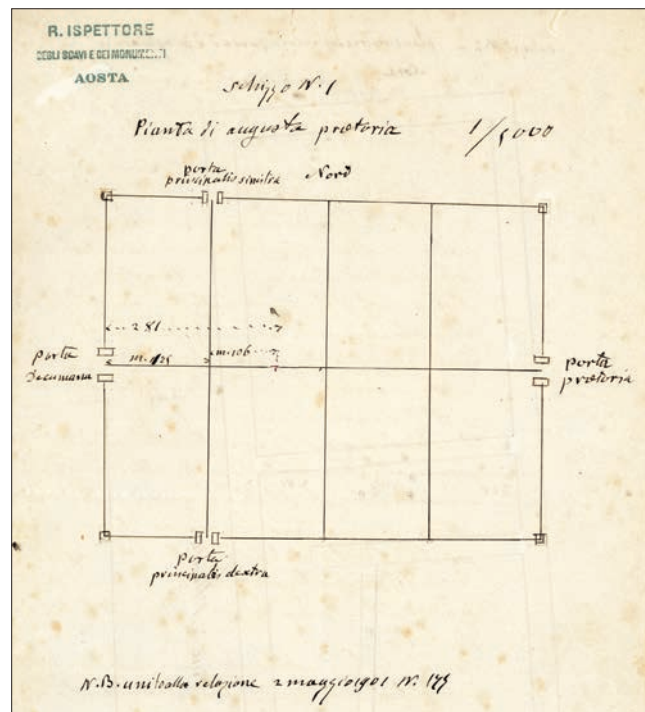 R. ISPETTORE
DEGLI SCAVI E DEI MONUMENTI
AOSTA
Schizzo N. 1
Pianta di augusta prœtoria 1/5000
porta
principalis sinistra
Nord
281
porta
decumana
m. 106
porta
prœtoria
porta
principalis dextra
N.B. unito alla relazione 2 maggio 1901 N.